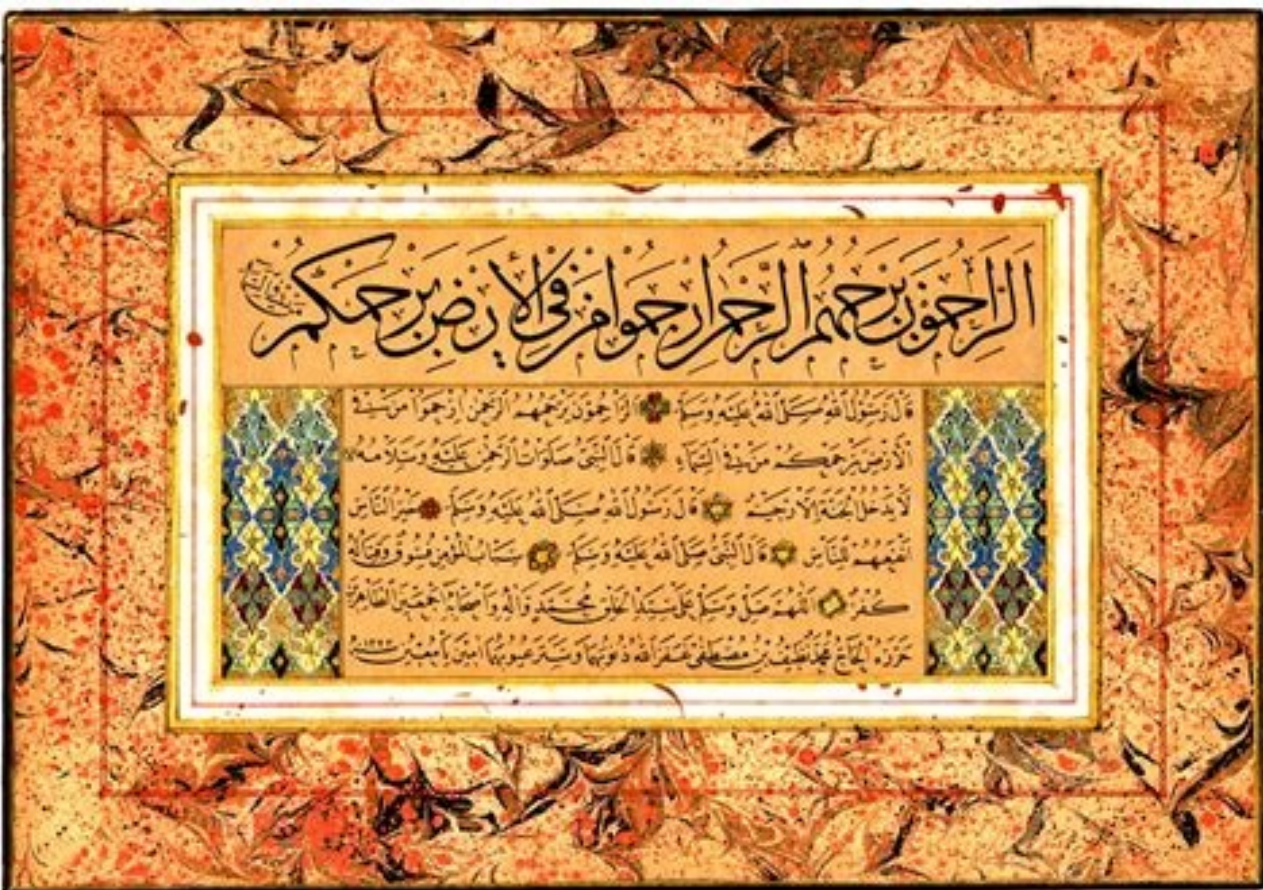 الرَّاحِمُونَ يَرْحَمُهُمُ الرَّحْمٰنُ اِرْحَمُوا مَنْ فِي الْأَرْضِ يَرْحَمْكُمْ
قَالَ رَسُولُ اللهِ صَلَّى اللهُ عَلَيْهِ وَسَلَّمَ الرَّاحِمُونَ يَرْحَمُهُمُ الرَّحْمٰنُ اِرْحَمُوا مَنْ فِي
الْأَرْضِ يَرْحَمْكُمْ مَنْ فِي السَّمَاءِ قَالَ النَّبِيُّ صَلَوَاتُ الرَّحْمٰنِ عَلَيْهِ وَسَلَامُهُ
لَا يَدْخُلُ الْجَنَّةَ اِلَّا رَحِيمٌ قَالَ رَسُولُ اللهِ صَلَّى اللهُ عَلَيْهِ وَسَلَّمَ خَيْرُ النَّاسِ
اَنْفَعُهُمْ لِلنَّاسِ قَالَ النَّبِيُّ صَلَّى اللهُ عَلَيْهِ وَسَلَّمَ سِبَابُ الْمُؤْمِنِ فُسُوقٌ وَقِتَالُهُ
كُفْرٌ اَللّٰهُمَّ صَلِّ وَسَلِّمْ عَلَى سَيِّدِ الْخَلْقِ مُحَمَّدٍ وَآلِهِ وَاَصْحَابِهِ اَجْمَعِينَ الطَّاهِرِينَ
حَرَّرَهُ الْحَاجُّ مُحَمَّد نَظِيف بْنِ مُصْطَفَى غَفَرَ اللهُ ذُنُوبَهُمَا وَسَتَرَ عُيُوبَهُمَا آمِينَ يَا مُعِينُ